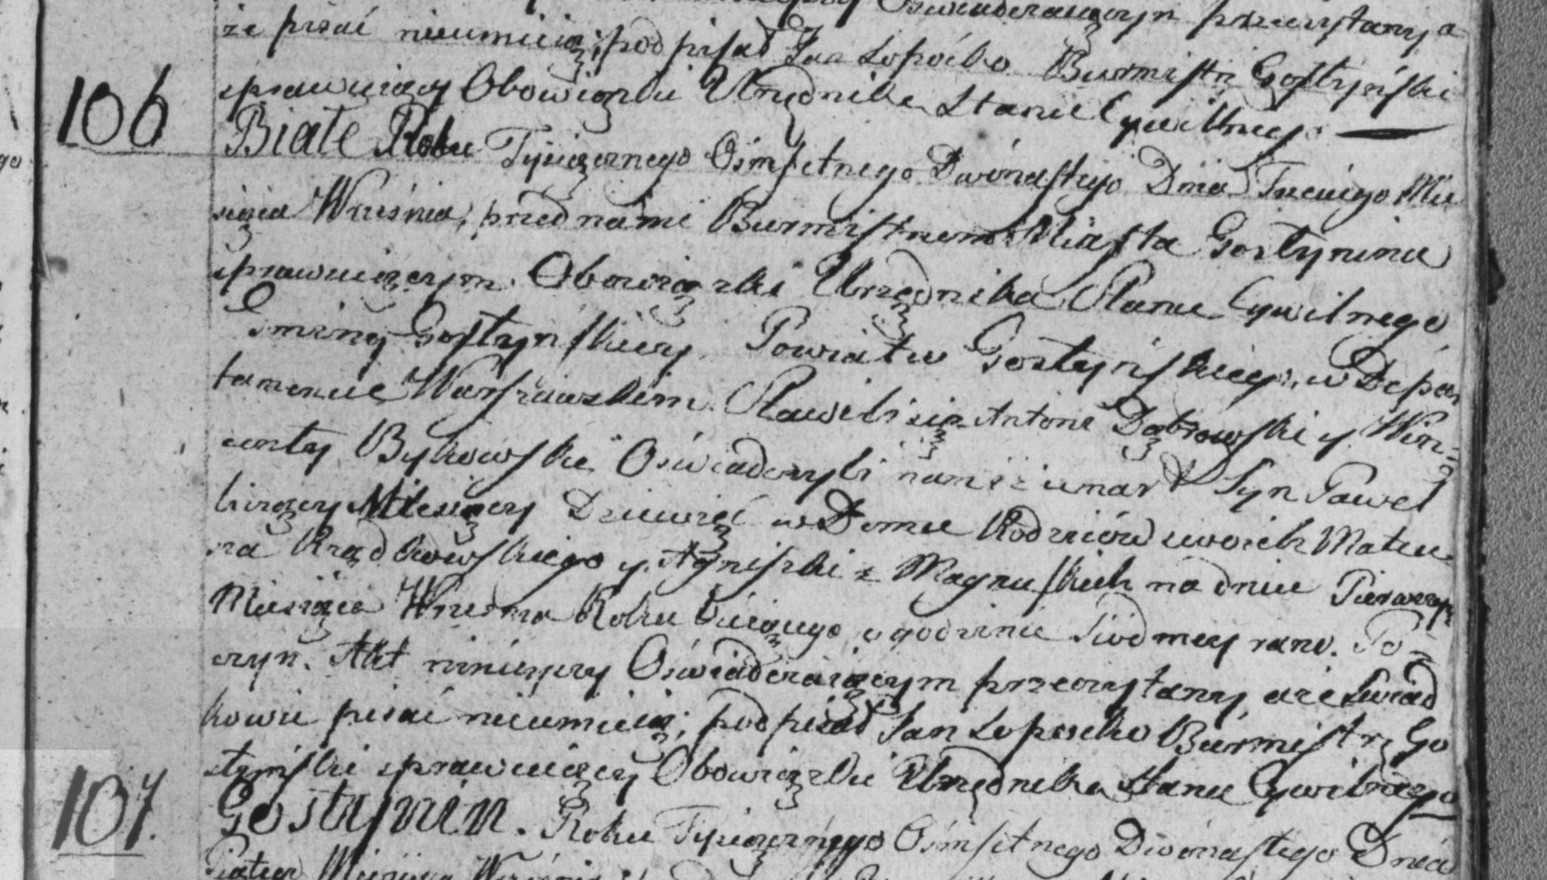 Oświadczaiącym przeczytany, a
że pisać nieumieią; podpisał Jan Łopoćko Burmistrz Gostyński
sprawuiący Obowiązki Urzędnika Stanu Cywilnego
106
Białe Roku Tysiącznego Osmsetnego Dwónastego Dnia Trzeciego Mie
siąca Września, przed nami Burmistrzem Miasta Gostynina
sprawuiącym Obowiązki Urzędnika Stanu Cywilnego
Gminy Gostyńskiey Powiatu Gostyńskiego, w Depar
tamencie Warszawskim. Stawili się Antoni Dąbrowski y Win=
centy Bykowski Oświadczyli nam iż umarł Syn Paweł
liczący Miesięcy Dziewięć w Domu Rodziców swoich Mateu
sza Krądkowskiego y Agniszki z Magnuskich na dniu Pierwszym
Miesiąca Wrzesnia Roku bieżącego o godzinie Siodmey rano. Po=
czym Akt ninieyszy Oświadczaiącym przeczytany, a że Swiad
kowie pisać nieumieią; podpisał Jan Łopocko Burmistrz Go
styński sprawuiący Obowiązki Urzędnika Stanu Cywilnego
107.
Gostynin. Roku Tysiącznego Osmsetnego Dwónastego Dnia
Piątego Miesiąca Września